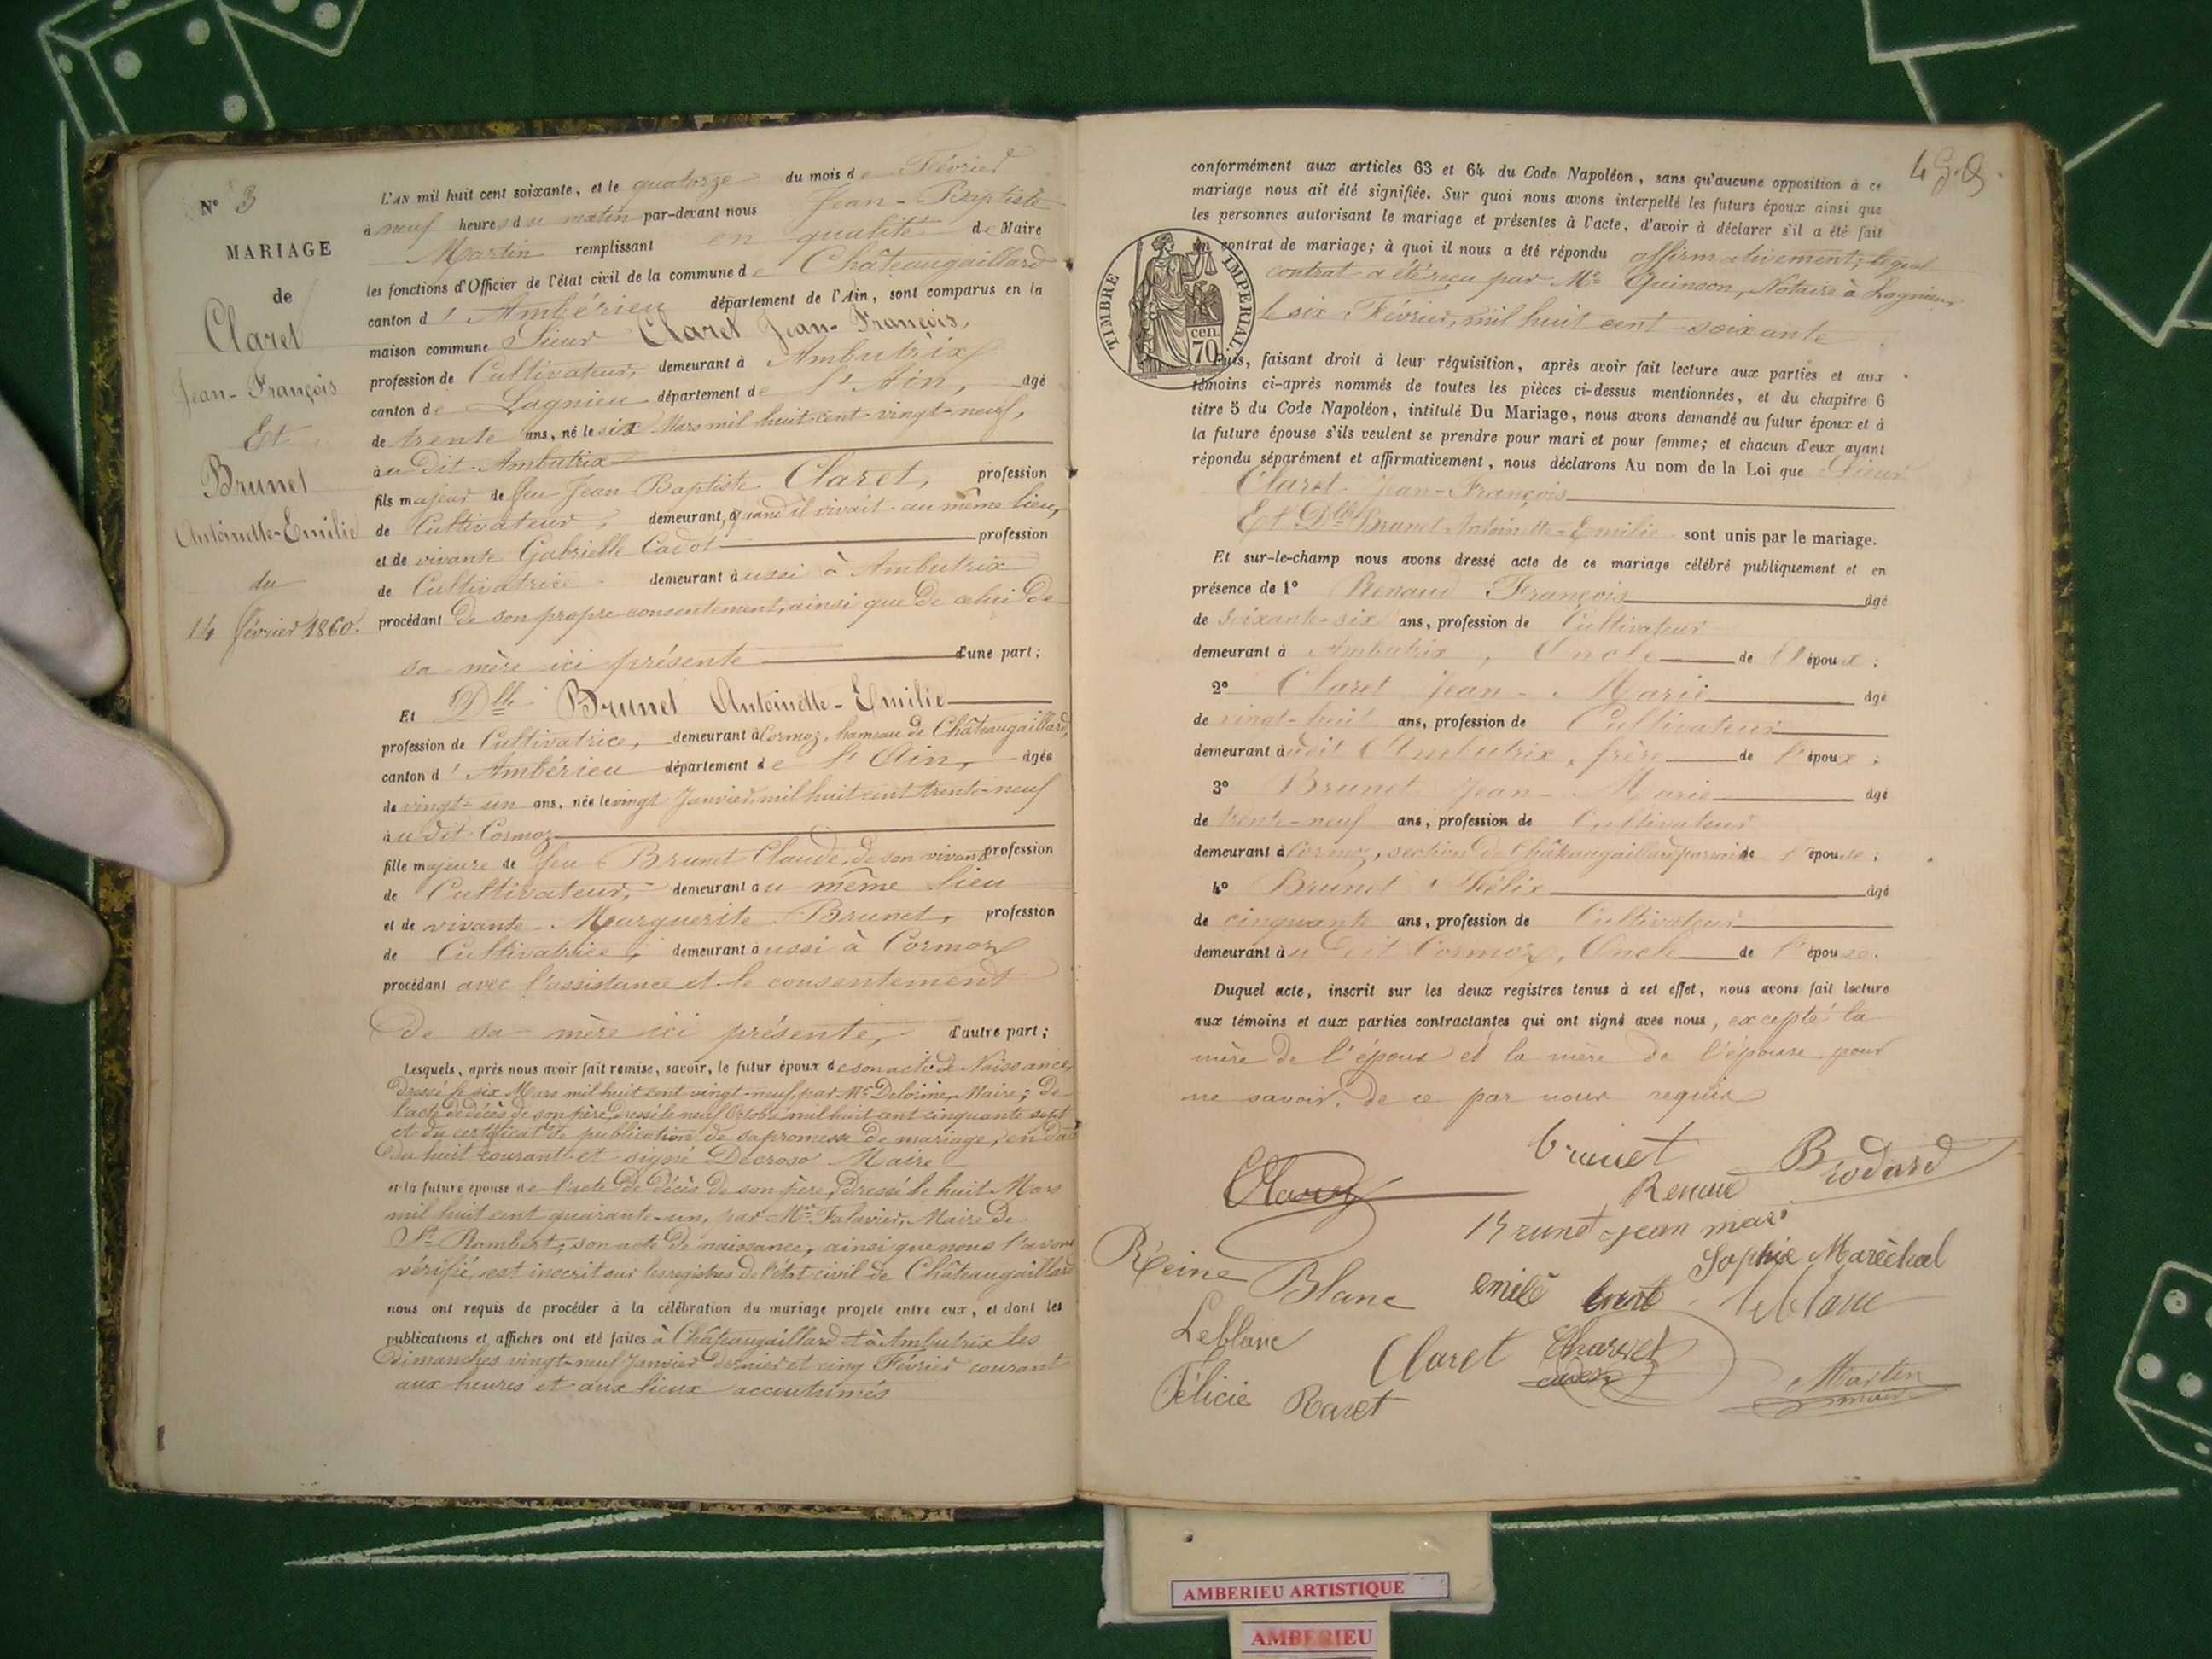 N° 3
MARIAGE
de
Claret
Jean-François
Et
Brunet
Antoinette-Emilie
du
14 février 1860.
L'AN mil huit cent soixante, et le quatorze du mois de Février
à neuf heures du matin par-devant nous Jean-Baptiste
Martin remplissant en qualité de Maire
les fonctions d'Officier de l'état civil de la commune de Châteaugaillard
canton d'Ambérieu département de l'Ain, sont comparus en la
maison commune Sieur Claret Jean-François,
profession de Cultivateur, demeurant à Ambutrix
canton de Lagnieu département de l'Ain, âgé
de trente ans, né le six Mars mil huit cent vingt-neuf,
à u dit Ambutrix
fils majeur de feu Jean Baptiste Claret, profession
de Cultivateur, demeurant, quand il vivait au même lieu,
et de vivante Gabrielle Cadot profession
de Cultivatrice demeurant aussi à Ambutrix
procédant de son propre consentement, ainsi que de celui de
sa mère ici présente d'une part;
Et Dlle Brunet Antoinette-Emilie
profession de Cultivatrice, demeurant à Cormoz, hameau de Châteaugaillard,
canton d'Ambérieu département de l'Ain, âgée
de vingt-un ans, née le vingt Janvier mil huit cent trente-neuf
à u dit Cormoz
fille majeure de feu Brunet Claude, de son vivant profession
de Cultivateur, demeurant au même lieu
et de vivante Marguerite Brunet, profession
de Cultivatrice, demeurant aussi à Cormoz
procédant avec l'assistance et le consentement
de sa mère ici présente, d'autre part;
Lesquels, après nous avoir fait remise, savoir, le futur époux de son acte de Naissance,
dressé le six Mars mil huit cent vingt-neuf, par Mr Delorme, Maire; de
l'acte de décès de son père, dressé le neuf Octobre mil huit cent cinquante sept
et du certificat de publication de sa promesse de mariage, en date
du huit courant et signé Decroso Maire
et la future épouse de l'acte de décès de son père, dressé le huit Mars
mil huit cent quarante-un, par Mr Falavier, Maire de
St Rambert, son acte de naissance, ainsi que nous l'avons
vérifié, est inscrit sur les registres de l'état civil de Châteaugaillard
nous ont requis de procéder à la célébration du mariage projeté entre eux, et dont les
publications et affiches ont été faites à Châteaugaillard et à Ambutrix les
Dimanches vingt-neuf Janvier dernier et cinq Février courant
aux heures et aux lieux accoutumés
conformément aux articles 63 et 64 du Code Napoléon, sans qu'aucune opposition à ce
mariage nous ait été signifiée. Sur quoi nous avons interpellé les futurs époux ainsi que
les personnes autorisant le mariage et présentes à l'acte, d'avoir à déclarer s'il a été fait
un contrat de mariage; à quoi il nous a été répondu affirmativement, lequel
contrat a été reçu par Me Quinson, Notaire à Lagnieu
le six Février, mil huit cent soixante
TIMBRE IMPERIAL.
70 cen.
Puis, faisant droit à leur réquisition, après avoir fait lecture aux parties et aux
témoins ci-après nommés de toutes les pièces ci-dessus mentionnées, et du chapitre 6
titre 5 du Code Napoléon, intitulé Du Mariage, nous avons demandé au futur époux et à
la future épouse s'ils veulent se prendre pour mari et pour femme; et chacun d'eux ayant
répondu séparément et affirmativement, nous déclarons Au nom de la Loi que Sieur
Claret Jean-François
Et Dlle Brunet Antoinette-Emilie sont unis par le mariage.
Et sur-le-champ nous avons dressé acte de ce mariage célébré publiquement et en
présence de 1° Renaud François âgé
de soixante-six ans, profession de Cultivateur
demeurant à Ambutrix, Oncle de l'époux;
2° Claret Jean-Marie âgé
de vingt-huit ans, profession de Cultivateur
demeurant au dit Ambutrix, frère de l'époux;
3° Brunet Jean-Marie âgé
de trente-neuf ans, profession de Cultivateur
demeurant à Cormoz, section de Châteaugaillard, parrain de l'épouse;
4° Brunet Félix âgé
de cinquante ans, profession de Cultivateur
demeurant au dit Cormoz, Oncle de l'épouse.
Duquel acte, inscrit sur les deux registres tenus à cet effet, nous avons fait lecture
aux témoins et aux parties contractantes qui ont signé avec nous, excepté la
mère de l'époux et la mère de l'épouse pour
ne savoir, de ce par nous requis
Claret
brunet
Renaud
Brodard
Brunet jean mari
Reine Blanc
Sophie Maréchal
emilè brunet
leblanc
Leblanc
Claret
Charvet
Félicie Ravet
Martin
maire
AMBERIEU ARTISTIQUE
AMBERIEU